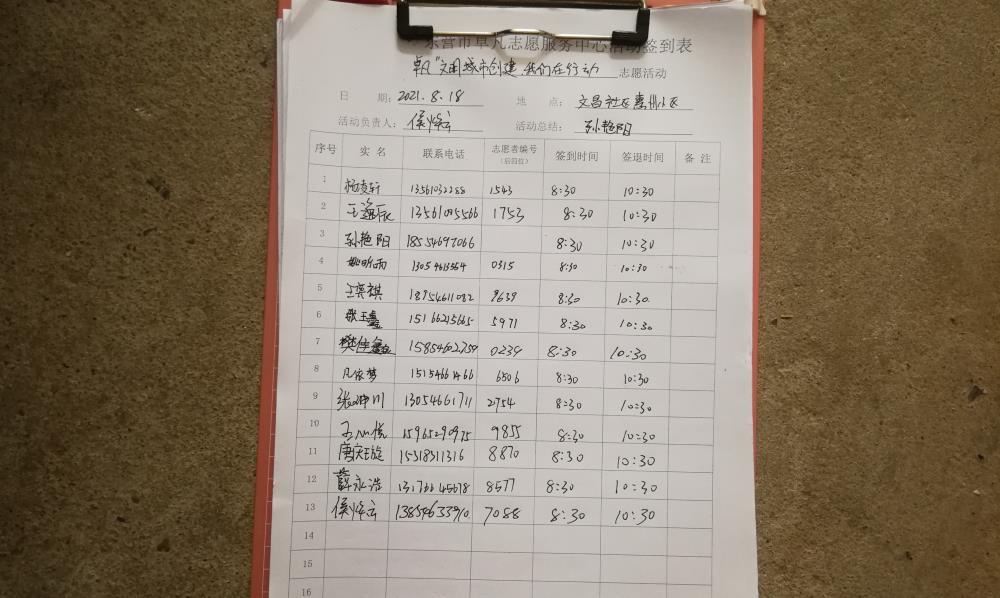 东营市卓凡志愿服务中心活动签到表
卓凡“文明城市创建,我们在行动 志愿活动
日 期: 2021.8.18 地 点: 文昌社区惠州小区
活动负责人: 侯烨云 活动总结: 孙艳阳
序号 实名 联系电话 志愿者编号(后四位) 签到时间 签退时间 备注
1 杨凌轩 13561032288 1543 8:30 10:30
2 王 13561095566 1753 8:30 10:30
3 孙艳阳 18554697066 8:30 10:30
4 姚昕雨 0315 8:30 10:30
5 王奕祺 18954611082 9639 8:30 10:30
6 张玉鑫 15166215665 5971 8:30 10:30
7 樊佳鑫 15854602759 0239 8:30 10:30
8 凡依梦 15154661466 6506 8:30 10:30
9 张坤川 13054661711 2754 8:30 10:30
10 王心悦 15965290975 9855 8:30 10:30
11 唐庆钰旋 15318311316 8870 8:30 10:30
12 薛永浩 13176645678 8577 8:30 10:30
13 侯烨云 13854633910 7088 8:30 10:30
14
15
16